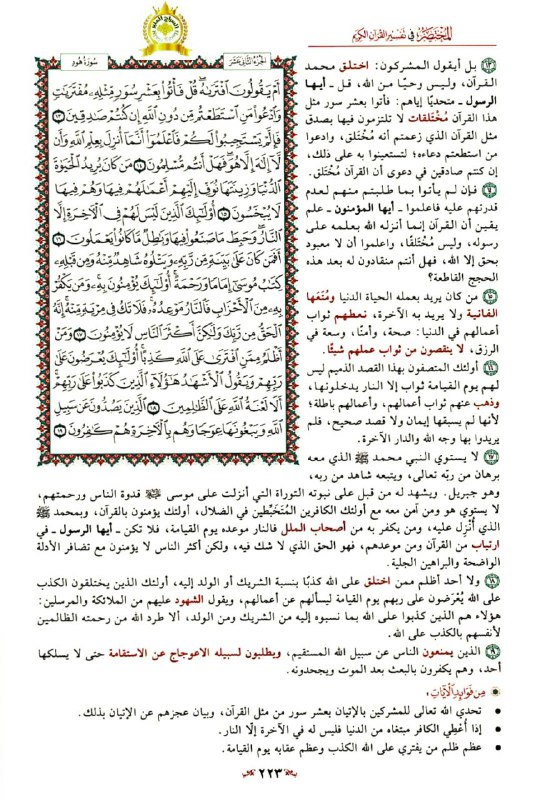 المختصر في تفسير القرآن الكريم
الجزء الثاني عشر
سورة هود
أَمۡ يَقُولُونَ ٱفۡتَرَىٰهُۖ قُلۡ فَأۡتُواْ بِعَشۡرِ سُوَرٖ مِّثۡلِهِۦ مُفۡتَرَيَٰتٖ
وَٱدۡعُواْ مَنِ ٱسۡتَطَعۡتُم مِّن دُونِ ٱللَّهِ إِن كُنتُمۡ صَٰدِقِينَ ١٣
فَإِلَّمۡ يَسۡتَجِيبُواْ لَكُمۡ فَٱعۡلَمُوٓاْ أَنَّمَآ أُنزِلَ بِعِلۡمِ ٱللَّهِ وَأَن
لَّآ إِلَٰهَ إِلَّا هُوَۖ فَهَلۡ أَنتُم مُّسۡلِمُونَ ١٤ مَن كَانَ يُرِيدُ ٱلۡحَيَوٰةَ
ٱلدُّنۡيَا وَزِينَتَهَا نُوَفِّ إِلَيۡهِمۡ أَعۡمَٰلَهُمۡ فِيهَا وَهُمۡ فِيهَا
لَا يُبۡخَسُونَ ١٥ أُوْلَٰٓئِكَ ٱلَّذِينَ لَيۡسَ لَهُمۡ فِي ٱلۡأٓخِرَةِ إِلَّا
ٱلنَّارُۖ وَحَبِطَ مَا صَنَعُواْ فِيهَا وَبَٰطِلٞ مَّا كَانُواْ يَعۡمَلُونَ ١٦
أَفَمَن كَانَ عَلَىٰ بَيِّنَةٖ مِّن رَّبِّهِۦ وَيَتۡلُوهُ شَاهِدٞ مِّنۡهُ وَمِن قَبۡلِهِۦ
كِتَٰبُ مُوسَىٰٓ إِمَامٗا وَرَحۡمَةًۚ أُوْلَٰٓئِكَ يُؤۡمِنُونَ بِهِۦۚ وَمَن يَكۡفُرۡ
بِهِۦ مِنَ ٱلۡأَحۡزَابِ فَٱلنَّارُ مَوۡعِدُهُۥۚ فَلَا تَكُ فِي مِرۡيَةٖ مِّنۡهُۚ إِنَّهُ
ٱلۡحَقُّ مِن رَّبِّكَ وَلَٰكِنَّ أَكۡثَرَ ٱلنَّاسِ لَا يُؤۡمِنُونَ ١٧ وَمَنۡ
أَظۡلَمُ مِمَّنِ ٱفۡتَرَىٰ عَلَى ٱللَّهِ كَذِبًاۚ أُوْلَٰٓئِكَ يُعۡرَضُونَ عَلَىٰ
رَبِّهِمۡ وَيَقُولُ ٱلۡأَشۡهَٰدُ هَٰٓؤُلَآءِ ٱلَّذِينَ كَذَبُواْ عَلَىٰ رَبِّهِمۡۚ
أَلَا لَعۡنَةُ ٱللَّهِ عَلَى ٱلظَّٰلِمِينَ ١٨ ٱلَّذِينَ يَصُدُّونَ عَن سَبِيلِ
ٱللَّهِ وَيَبۡغُونَهَا عِوَجٗا وَهُم بِٱلۡأٓخِرَةِ هُمۡ كَٰفِرُونَ ١٩
١٣ بل أيقول المشركون: اختلق محمد
القرآن، وليس وحيًا من الله، قل ـ أيها
الرسول ـ متحديًا إياهم: فأتوا بعشر سور مثل
هذا القرآن مُخْتَلَقات لا تلتزمون فيها بصدق
مثل القرآن الذي زعمتم أنه مُخْتلَق، وادعوا
من استطعتم دعاءه؛ لتستعينوا به على ذلك،
إن كنتم صادقين في دعوى أن القرآن مُخْتلَق.
١٤ فإن لم يأتوا بما طلبتم منهم لعدم
قدرتهم عليه فاعلموا ـ أيها المؤمنون ـ علم
يقين أن القرآن إنما أنزله الله بعلمه على
رسوله، وليس مُخْتَلَقًا، واعلموا أن لا معبود
بحق إلا الله، فهل أنتم منقادون له بعد هذه
الحجج القاطعة؟
١٥ من كان يريد بعمله الحياة الدنيا ومُتَعَها
الفانية ولا يريد به الآخرة، نعطهم ثواب
أعمالهم في الدنيا: صحة، وأمنًا، وسعة في
الرزق، لا ينقصون من ثواب عملهم شيئًا.
١٦ أولئك المتصفون بهذا القصد الذميم ليس
لهم يوم القيامة ثواب إلا النار يدخلونها،
وذهب عنهم ثواب أعمالهم، وأعمالهم باطلة؛
لأنها لم يسبقها إيمان ولا قصد صحيح، فلم
يريدوا بها وجه الله والدار الآخرة.
١٧ لا يستوي النبي محمد ﷺ الذي معه
برهان من ربّه تعالى، ويتبعه شاهد من ربه،
وهو جبريل. ويشهد له من قبل على نبوته التوراة التي أنزلت على موسى ﷺ قدوة الناس ورحمتهم،
لا يستوي هو ومن آمن معه مع أولئك الكافرين المتخبِّطين في الضلال، أولئك يؤمنون بالقرآن، وبمحمد ﷺ
الذي أُنزِل عليه، ومن يكفر به من أصحاب الملل فالنار موعده يوم القيامة، فلا تكن ـ أيها الرسول ـ في
ارتياب من القرآن ومن موعدهم، فهو الحق الذي لا شك فيه، ولكن أكثر الناس لا يؤمنون مع تضافر الأدلة
الواضحة والبراهين الجلية.
١٨ ولا أحد أظلم ممن اختلق على الله كذبًا بنسبة الشريك أو الولد إليه، أولئك الذين يختلقون الكذب
على الله يُعْرَضون على ربهم يوم القيامة ليسألهم عن أعمالهم، ويقول الشهود عليهم من الملائكة والمرسلين:
هؤلاء هم الذين كذبوا على الله بما نسبوه إليه من الشريك ومن الولد، ألا طرد الله من رحمته الظالمين
لأنفسهم بالكذب على الله.
١٩ الذين يمنعون الناس عن سبيل الله المستقيم، ويطلبون لسبيله الاعوجاج عن الاستقامة حتى لا يسلكها
أحد، وهم يكفرون بالبعث بعد الموت ويجحدونه.
من فوائد الآيات:
• تحدي الله تعالى للمشركين بالإتيان بعشر سور من مثل القرآن، وبيان عجزهم عن الإتيان بذلك.
• إذا أُعْطِي الكافر مبتغاه من الدنيا فليس له في الآخرة إلّا النار.
• عظم ظلم من يفتري على الله الكذب وعظم عقابه يوم القيامة.
٢٢٣